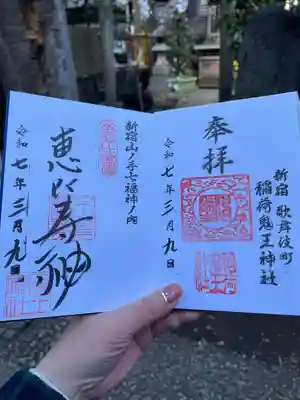 新宿 歌舞伎町
稲荷鬼王神社
奉拝
令和七年三月九日
新宿山ノ手七福神ノ内
恵比寿神
令和七年三月九日